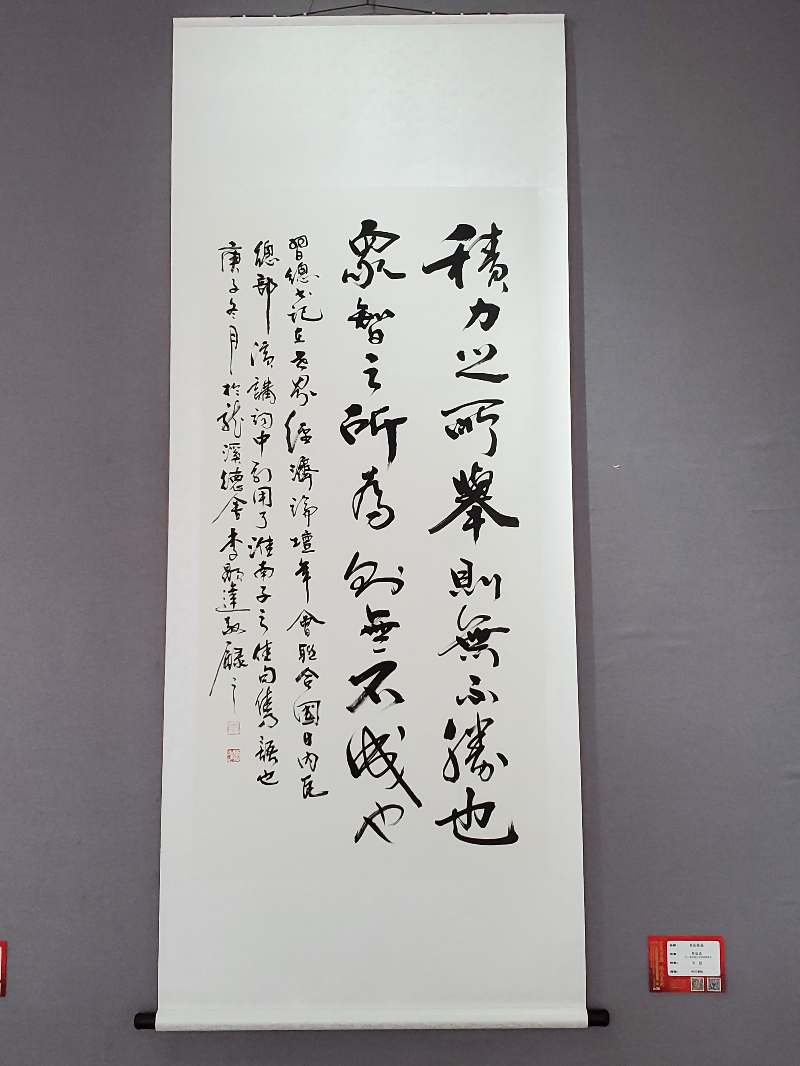 積力之所舉則無不勝也
眾智之所為則無不成也
習總書記在世界經濟論壇年會聯合國日內瓦
總部演講詞中引用了淮南子之佳句雋語也
庚子冬月於龍溪德舍李顯達敬錄之